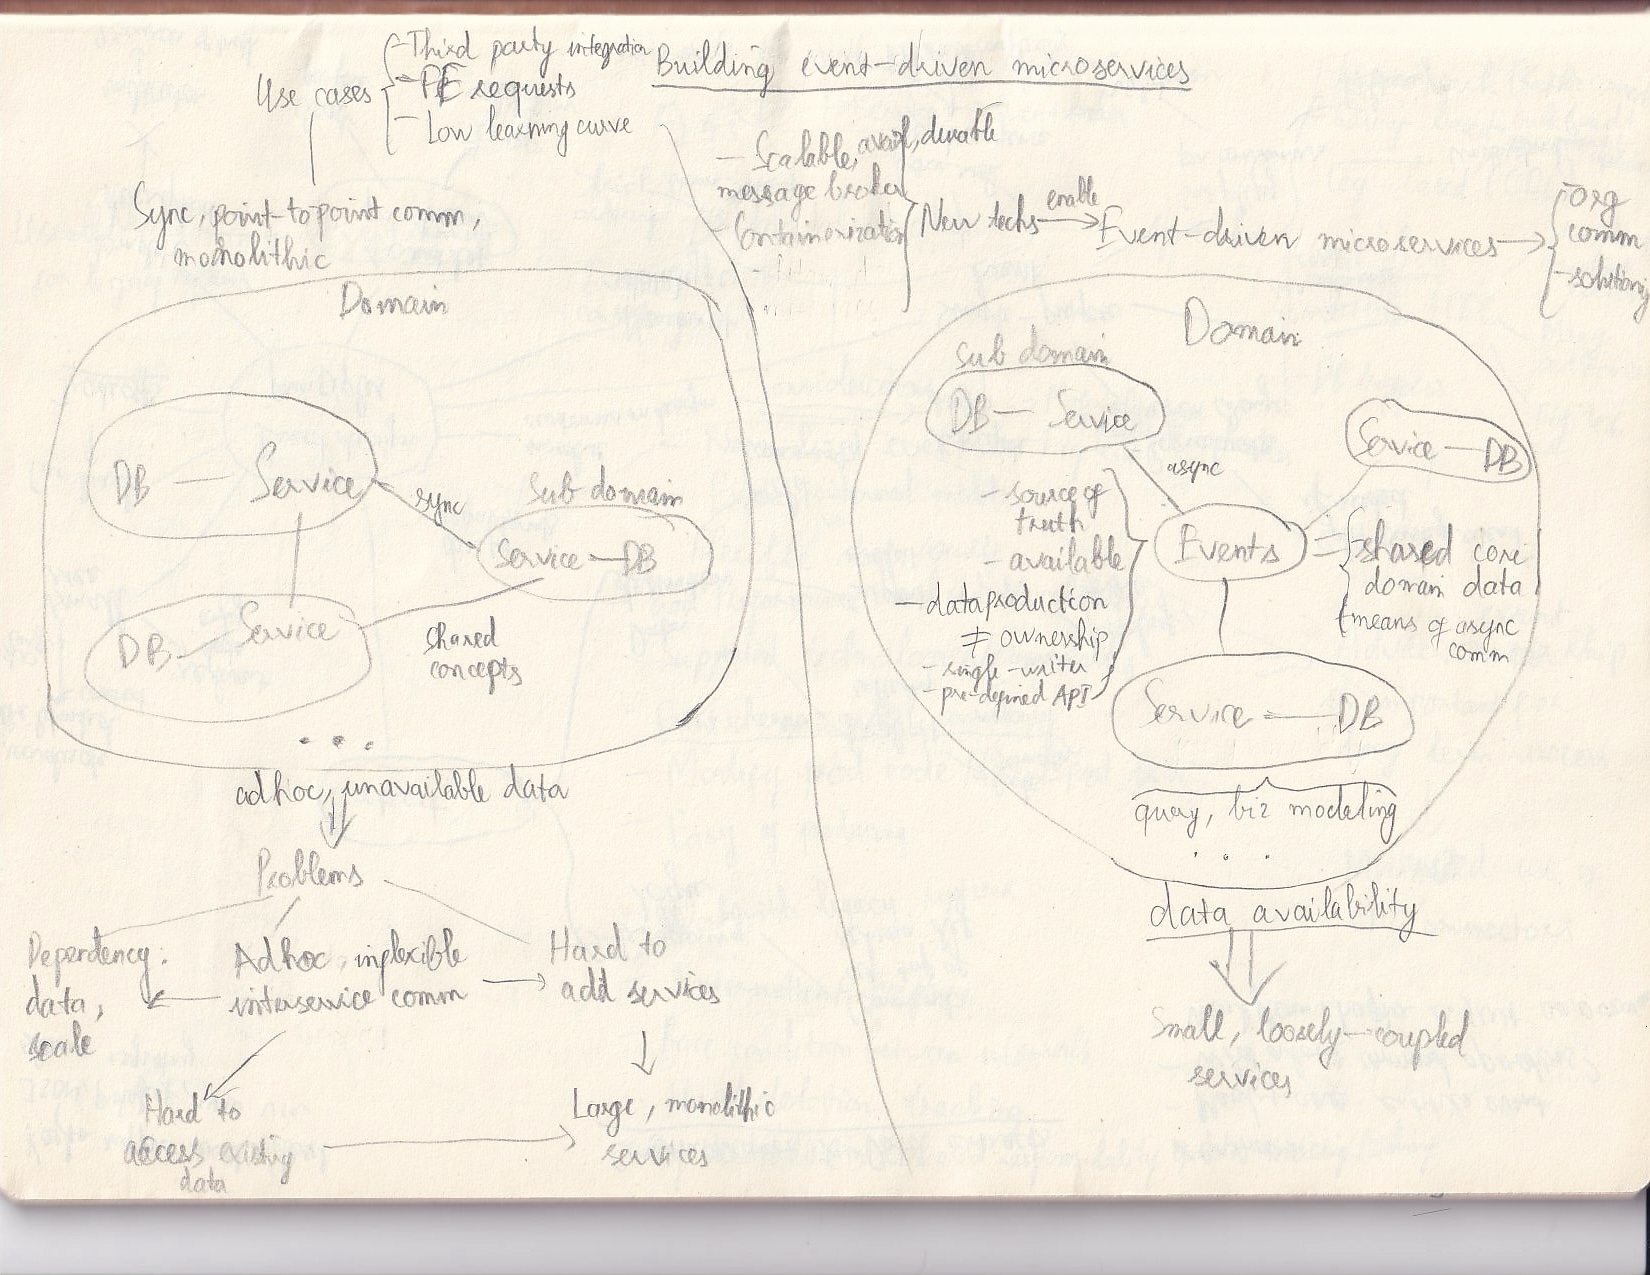 Building event-driven microservices
Use cases
- Third party integration
- FE requests
- Low learning curve
Sync, point-to-point comm,
monolithic
Domain
DB — Service
sync
Sub domain
Service — DB
DB — Service
shared
concepts
...
adhoc, unavailable data
Problems
Dependency:
data,
scale
Adhoc, inflexible
interservice comm
Hard to
add services
Hard to
access existing
data
Large, monolithic
services
- Scalable, avail, durable
message broker
- Containerization
...
New techs
enable
Event-driven microservices
- org
comm
- solutioning
Domain
Sub domain
DB — Service
async
Service — DB
- source of
truth
- available
- data production
≠ ownership
- single-writer
- pre-defined API
Events
=
- shared core
domain data
- means of async
comm
Service — DB
query, biz modeling
...
data availability
Small, loosely-coupled
services